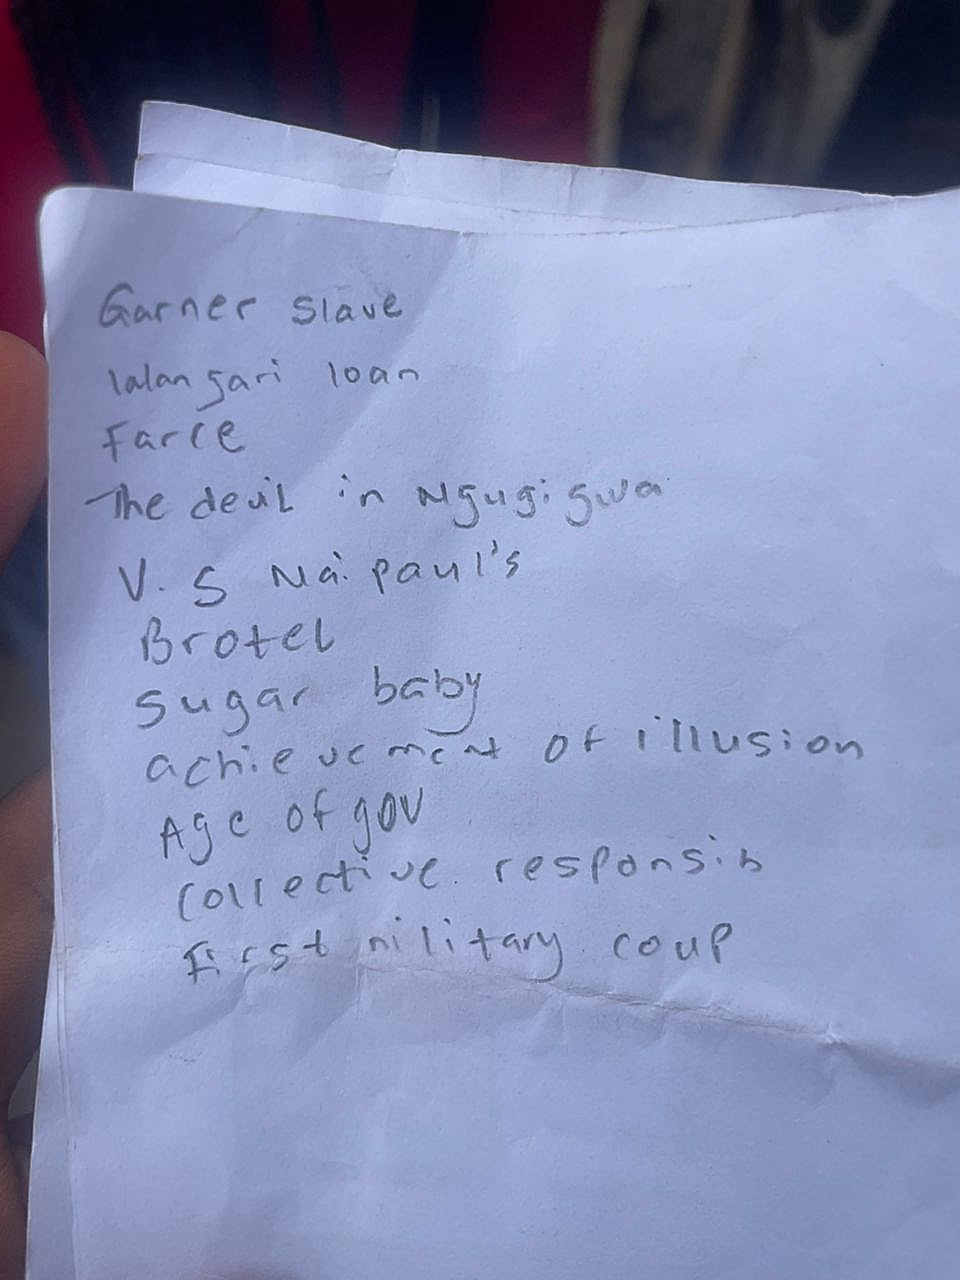 Garner slave
lalangari loan
Farce
The devil in Ngugi gwa
V. S Naipaul's
Brotel
Sugar baby
achievement of illusion
Age of gov
Collective responsib
First military coup